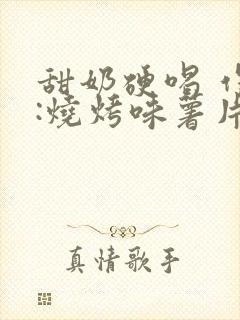 甜奶硬唱
:燒烤味薯片
真情歌手